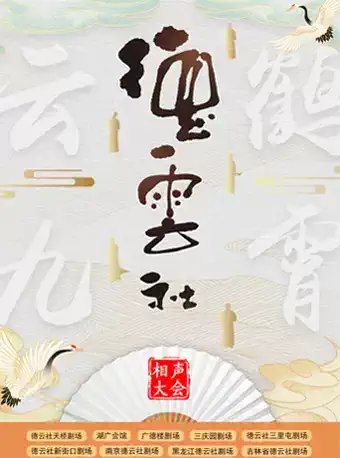 德云社
云鹤九霄
相声
大会
德云社天桥剧场 湖广会馆 广德楼剧场 三庆园剧场 德云社三里屯剧场
德云社新街口剧场 南京德云社剧场 黑龙江德云社剧场 吉林省德云社剧场